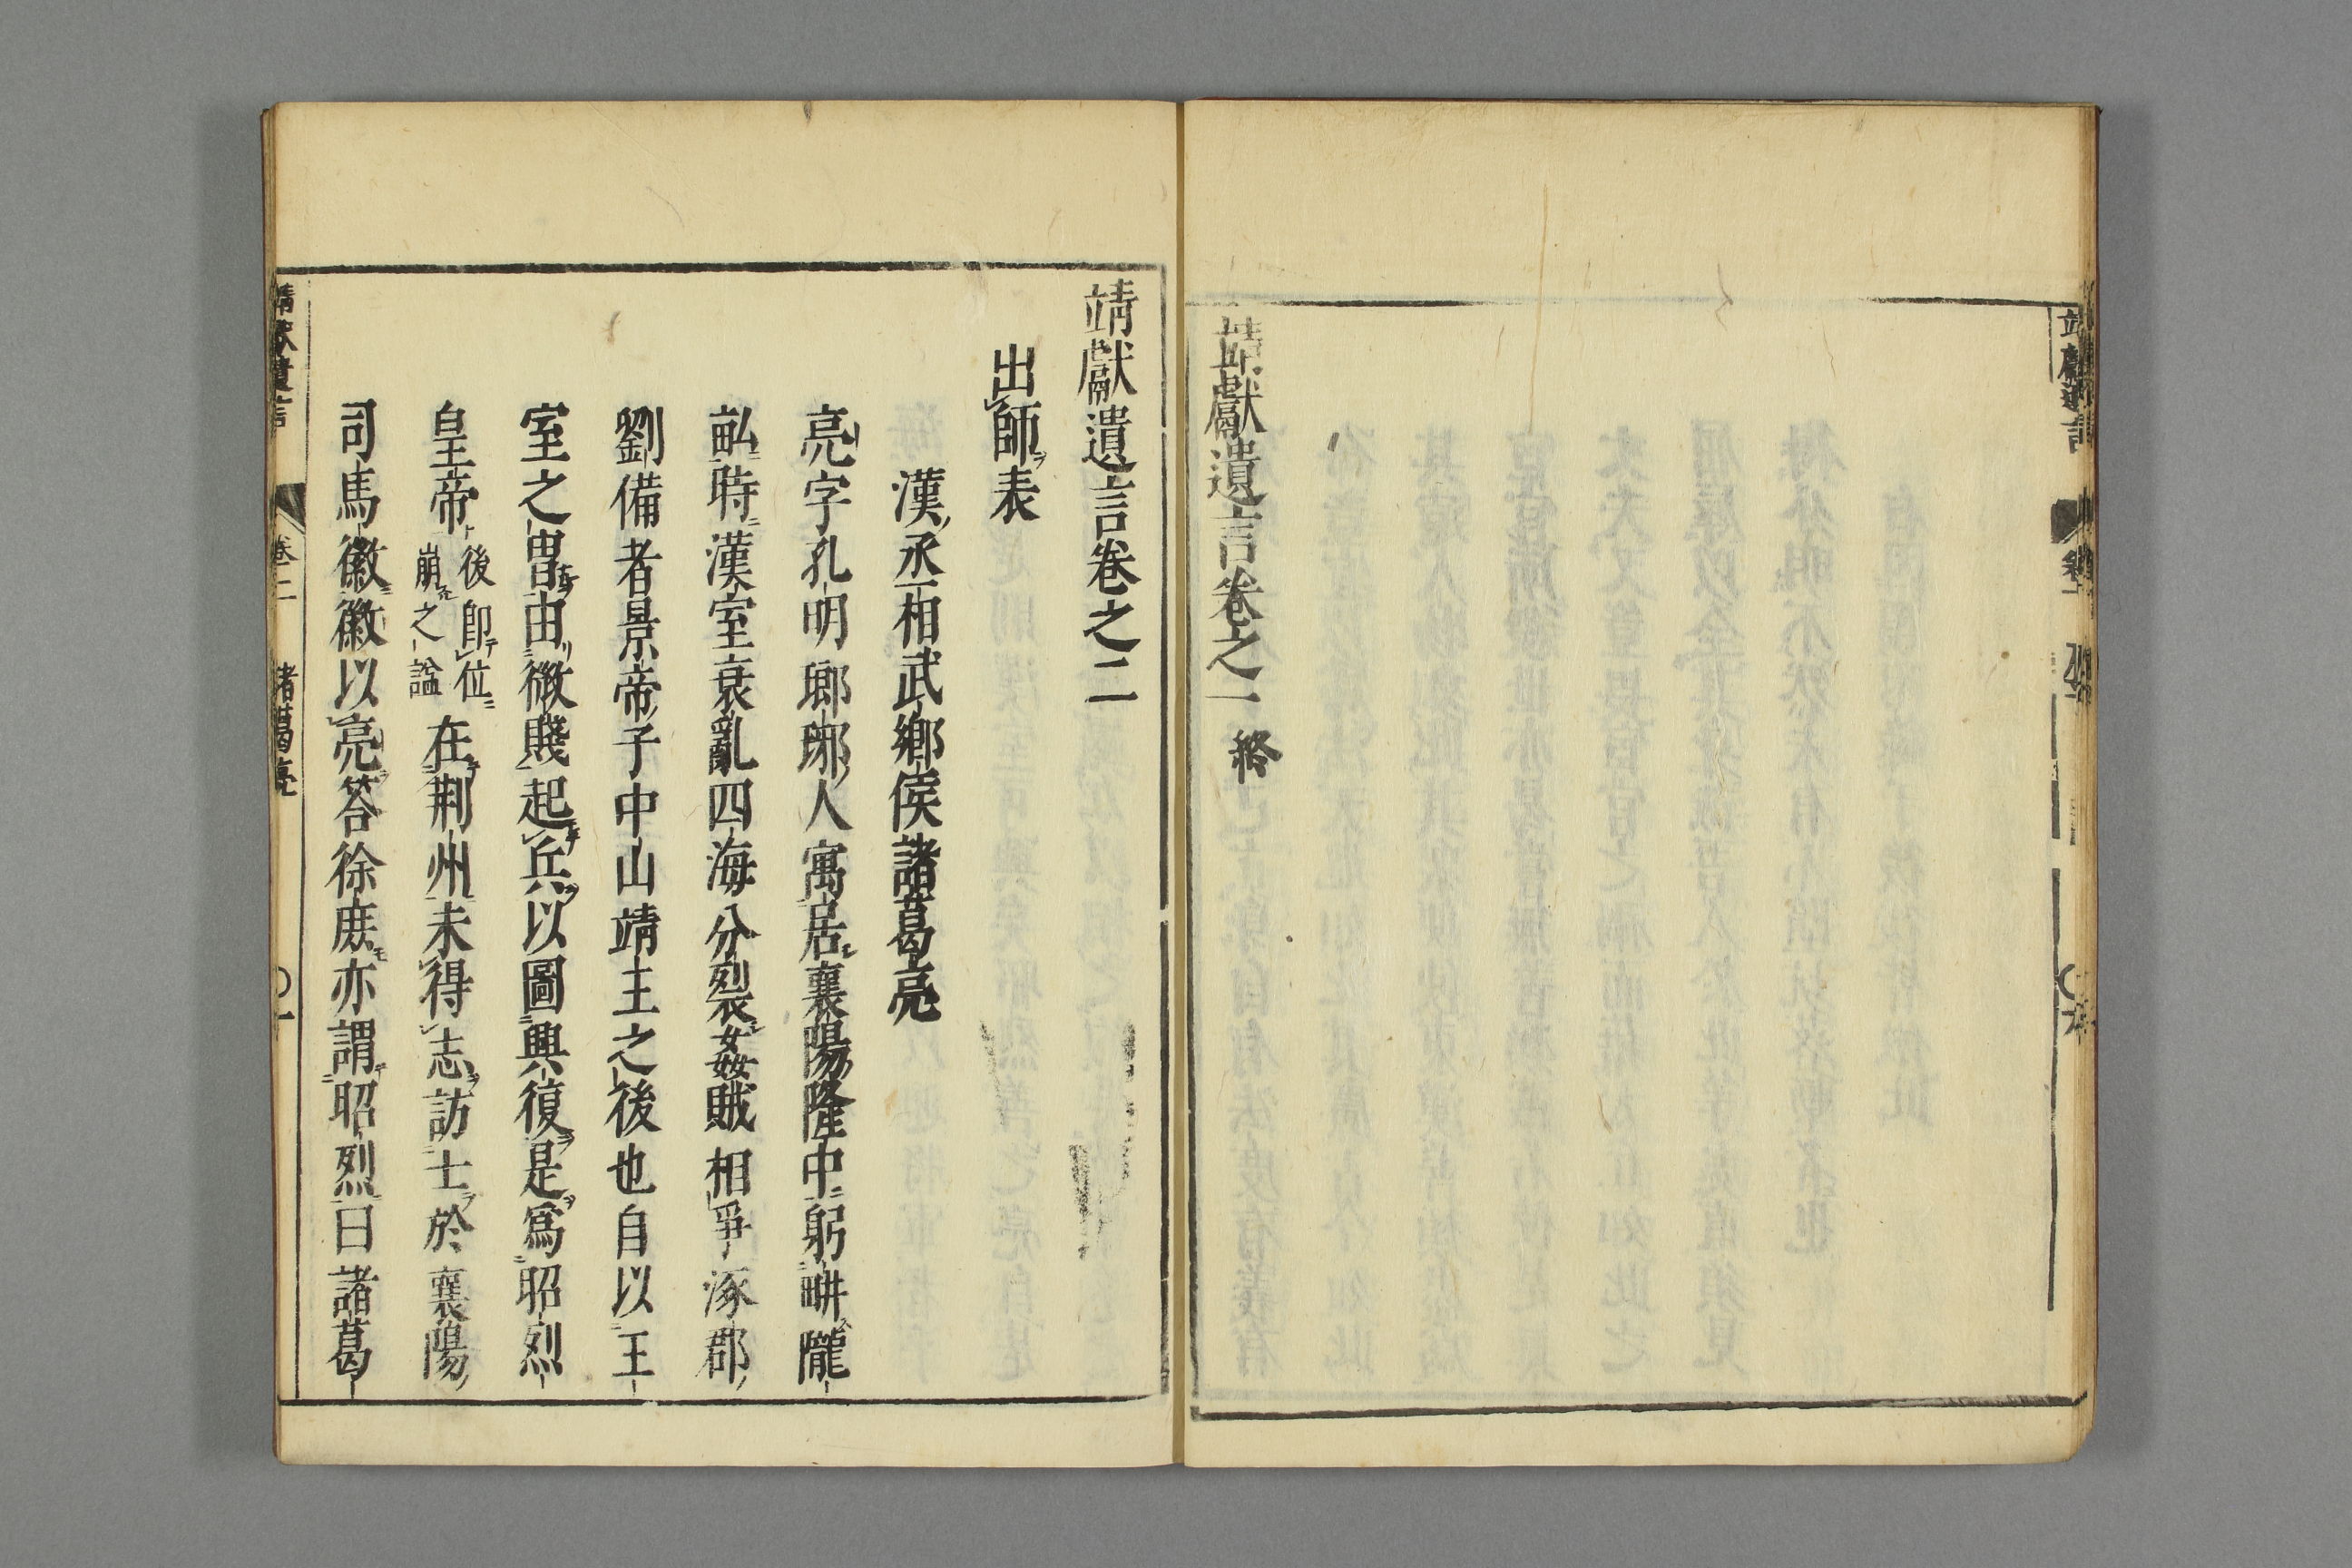 靖獻遺言卷之一 終
靖獻遺言卷之二
出師表
漢丞相武鄉侯諸葛亮
亮字孔明瑯琊人寓居襄陽隆中躬畊隴
畝時漢室衰亂四海分裂姦賊相爭涿郡
劉備者景帝子中山靖王之後也自以王
室之冑由微賤起兵以圖興復是爲昭烈
皇帝後即位崩之諡在荆州未得志訪士於襄陽
司馬徽徽以亮答徐庶亦謂昭烈曰諸葛
靖獻遺言 卷二 諸葛亮 〇一